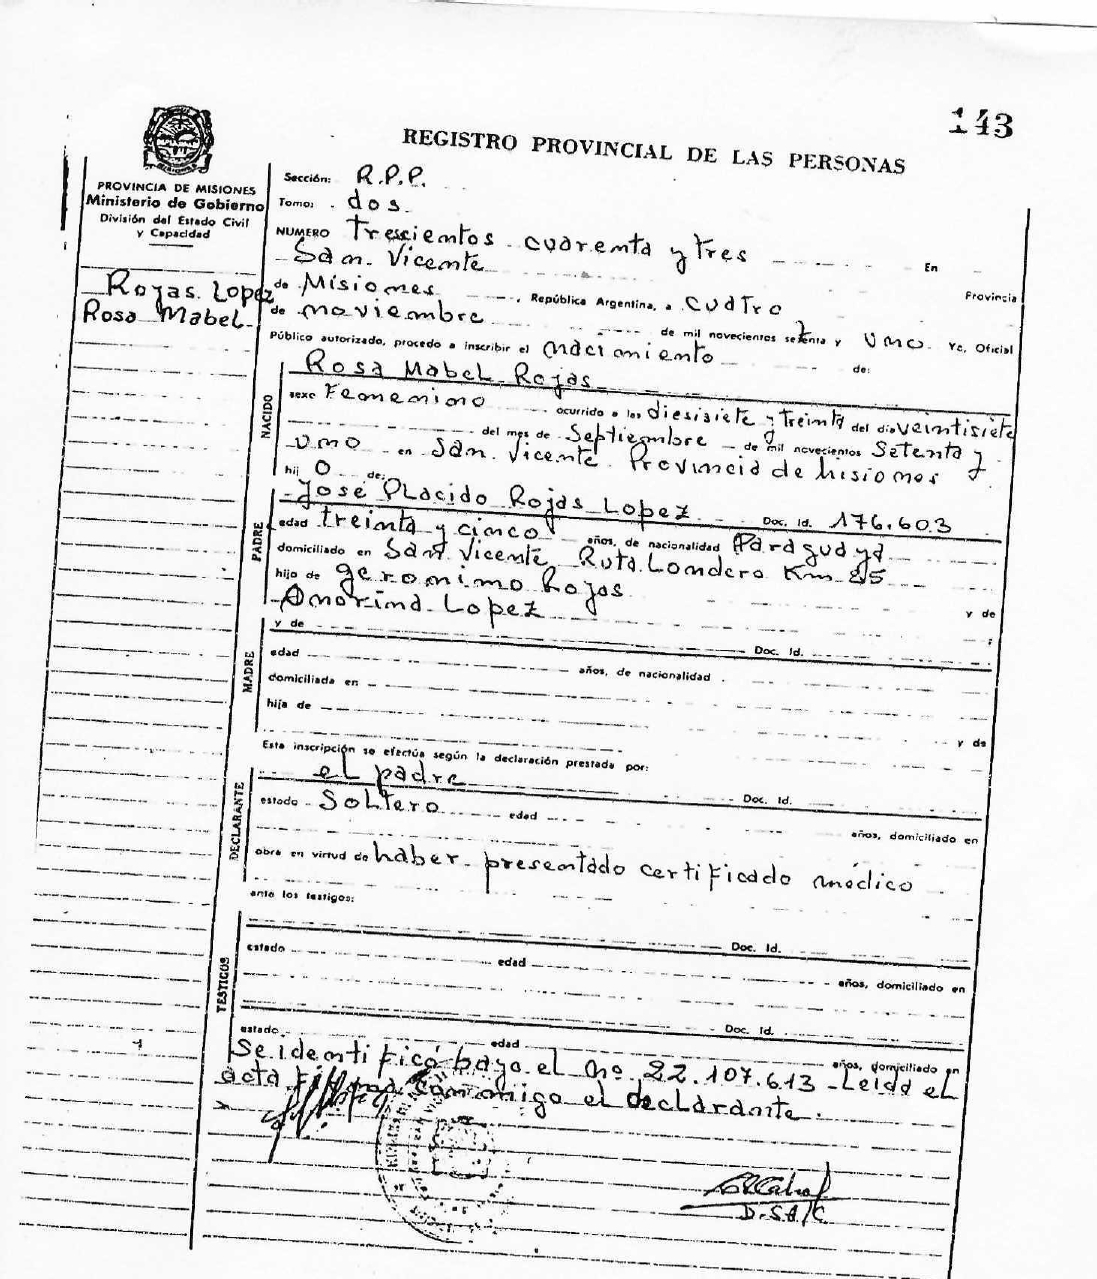 143
REGISTRO PROVINCIAL DE LAS PERSONAS
PROVINCIA DE MISIONES
Ministerio de Gobierno
División del Estado Civil
y Capacidad
Rojas Lopez
Rosa Mabel
Sección: R.P.P.
Tomo: dos.
NUMERO trescientos cuarenta y tres En
San Vicente Provincia
de Misiones, República Argentina, a cuatro
de noviembre de mil novecientos setenta y uno. Yo, Oficial
Público autorizado, procedo a inscribir el nacimiento de:
NACIDO
Rosa Mabel Rojas
sexo Femenino ocurrido a las diesisiete y treinta del día veintisiete
del mes de Septiembre de mil novecientos Setenta y
uno en San Vicente Provincia de Misiones
hij o de:
PADRE
José Placido Rojas Lopez Doc. Id. 176.603
edad treinta y cinco años, de nacionalidad Paraguaya
domiciliado en San Vicente Ruta Londero Km 25
hijo de geronimo Rojas
y de
Amorina Lopez
MADRE
y de Doc. Id.
edad años, de nacionalidad
domiciliada en
hija de y de
Esta inscripción se efectúa según la declaración prestada por:
DECLARANTE
el padre Doc. Id.
estado Soltero edad años, domiciliado en
obra en virtud de haber presentado certificado médico
ante los testigos:
TESTIGOS
Doc. Id.
estado edad años, domiciliado en
Doc. Id.
estado edad años, domiciliado en
Se identificó bajo el no. 22.107.613 Leida el
acta firma conmigo el declarante.